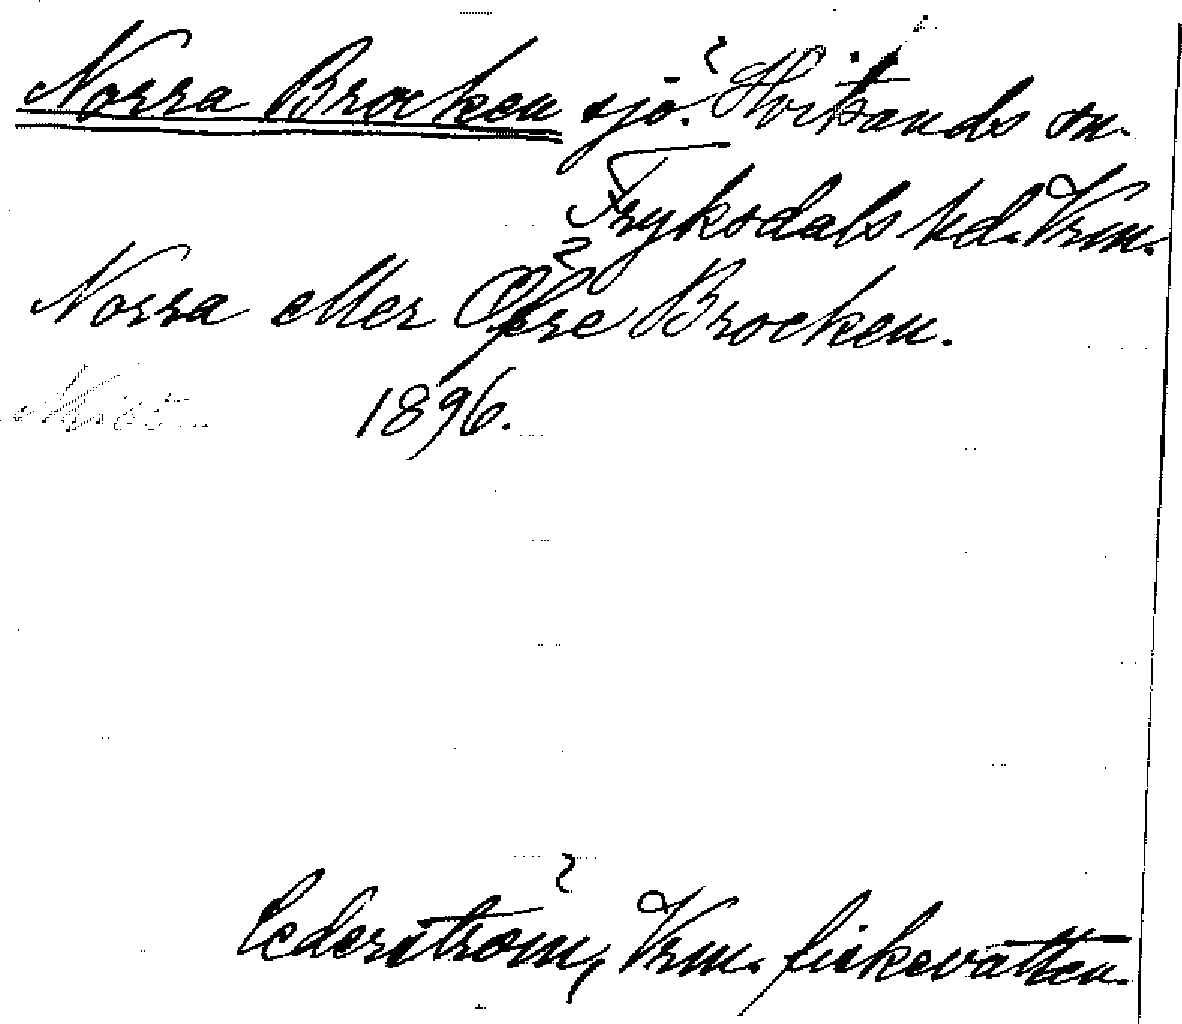 Norra Brocken sjö. Hvitsands sn.
Fryksdals hd. Vrm.
Norra eller Öfre Brocken.
1896.
Cederström, Vrm. fiskevatten.